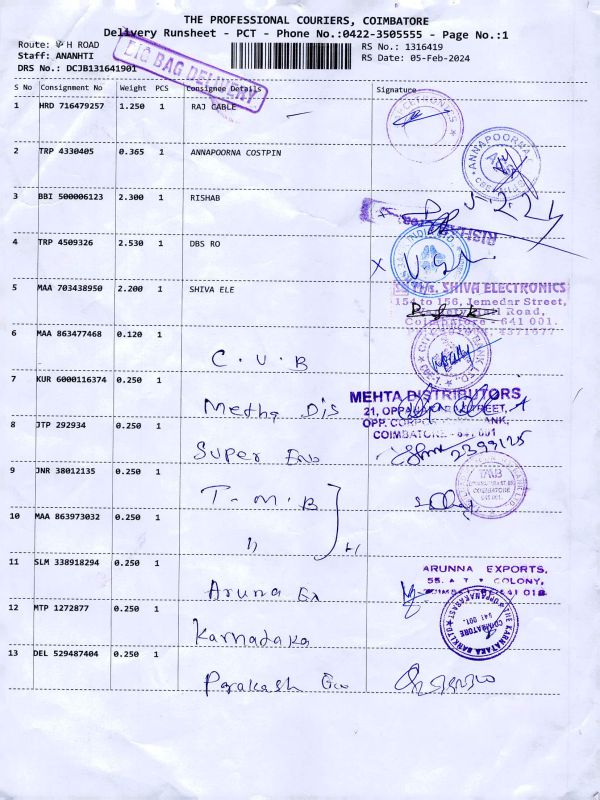 THE PROFESSIONAL COURIERS, COIMBATORE
Delivery Runsheet - PCT - Phone No.:0422-3505555 - Page No.:1
Route: H ROAD
RS No.: 1316419
Staff: ANANHTI
RS Date: 05-Feb-2024
DRS No.: DCJB131641901
BIG BAG DELIVERY
S No Consignment No Weight PCS Consignee Details Signature
1 HRD 716479257 1.250 1 RAJ CABLE
2 TRP 4330405 0.365 1 ANNAPOORNA COSTPIN
3 BBI 500006123 2.300 1 RISHAB
4 TRP 4509326 2.530 1 DBS RO
5 MAA 703438950 2.200 1 SHIVA ELE
SHIVA ELECTRONICS
154 to 156, Jemedar Street,
Coimbatore - 641 001.
6 MAA 863477468 0.120 1
C.U.B
7 KUR 6000116374 0.250 1
Metha Dis
MEHTA DISTRIBUTORS
COIMBATORE - 641 001
8 JTP 292934 0.250 1
Super
9 JNR 38012135 0.250 1
T.M.B
TMB
COIMBATORE
10 MAA 863973032 0.250 1
11 SLM 338918294 0.250 1
Aruna Ex
ARUNNA EXPORTS,
COLONY,
12 MTP 1272877 0.250 1
Karnataka
THE KARNATAKA BANK LTD
COIMBATORE
641 001.
13 DEL 529487404 0.250 1
Prakash